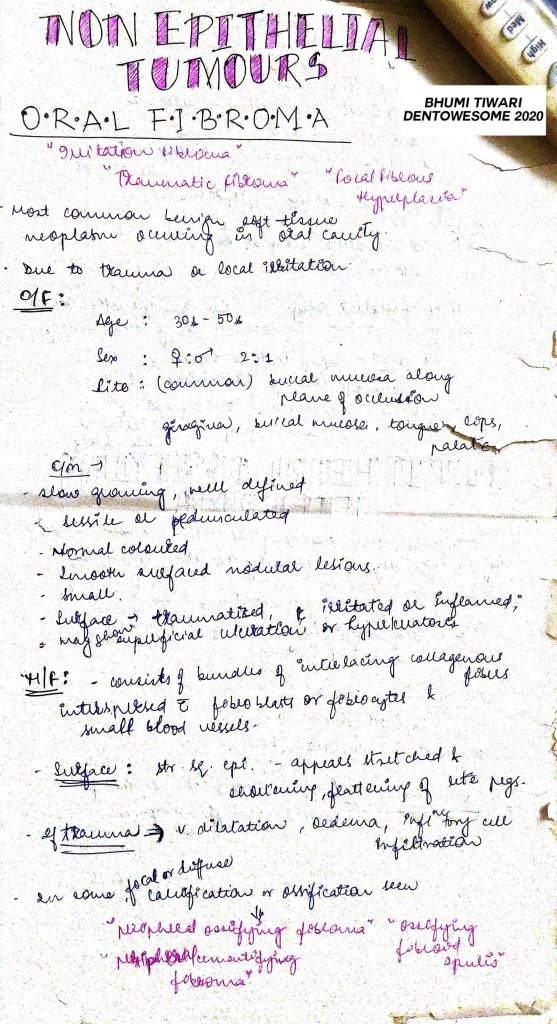 NON EPITHELIAL
TUMOURS
BHUMI TIWARI
DENTOWESOME 2020
O.R.A.L F.I.B.R.O.M.A
"Irritation fibroma"
"Traumatic fibroma" "Focal Fibrous
Hyperplasia"
- Most common benign soft tissue
neoplasm occuring in oral cavity.
- Due to trauma or local irritation.
C/F:
Age : 30s - 50s
Sex : ♀:♂ 2:1
Site : (common) buccal mucosa along
plane of occlusion
gingiva, buccal mucosa, tongue, lips,
palate.
C/M →
- slow growing, well defined
sessile or pedunculated
- Normal coloured
- Smooth surfaced nodular lesions.
- Small.
- Surface → traumatized, irritated or inflamed;
may show superficial ulceration or hyperkeratosis
H/F: - consists of bundles of interlacing collagenous
fibres
interspersed c̄ fibroblasts or fibrocytes &
small blood vessels.
- Surface : str. sq. epi. - appears stretched &
shortening, flattening of rete pegs.
- If trauma → v. dilatation, oedema, inflammatory cell
infiltration
- In some, focal or diffuse
calcification or ossification seen
↓
"Peripheral ossifying fibroma" "ossifying
fibroid
epulis"
"Peripheral cementifying
fibroma"